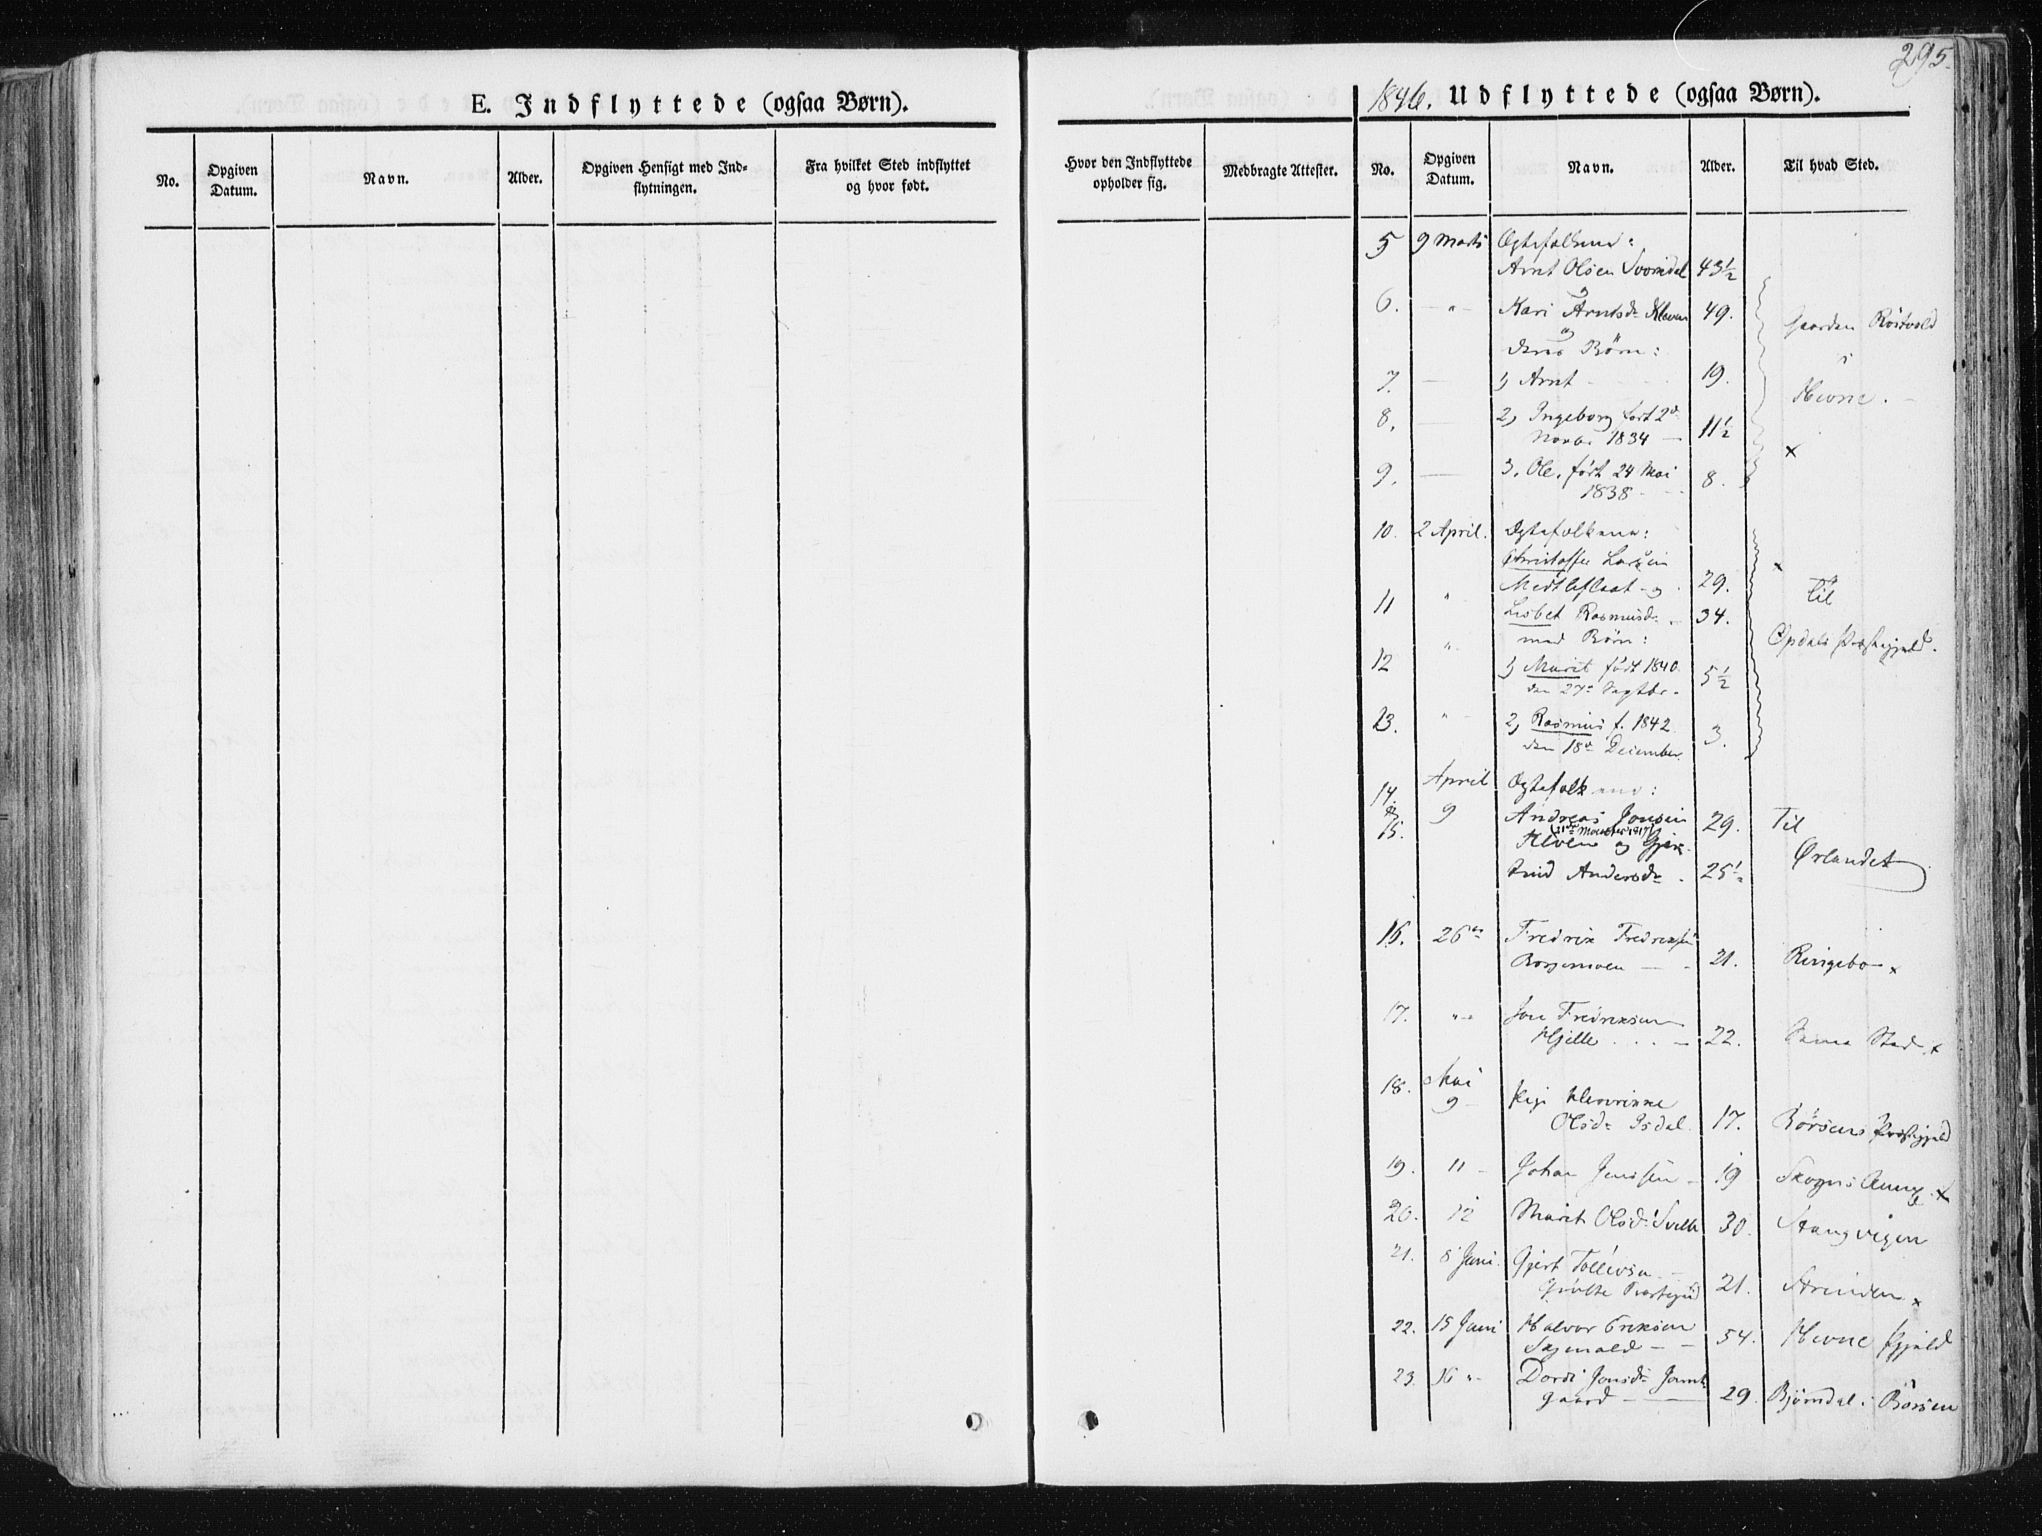 295.
E. Indflyttede (ogsaa Børn).
1846. Udflyttede (ogsaa Børn).
No.
Opgiven Datum.
Navn.
Alder.
Opgiven Hensigt med Ind-
flytningen.
Fra hvilket Sted indflyttet
og hvor født.
Hvor den Indflyttede
opholder sig.
Medbragte Attester.
No.
Opgiven Datum.
Navn.
Alder.
Til hvad Sted.
5 9 Marts Egtefolkene:
Arnt Olsen 43½
6. -"- Kari Arntsd. Kleven 49. Gaarden Röstvold
og
deres Börn: i
7. 1) Arnt 19. Hevne.
8. 2) Ingeborg født 2d
Novbr 1834 11½
9. 3. Ole. født 24 Mai
1838 8.
10. 2 April. Egtefolkene:
Christoffer Larsen
- og 29. Til
11 " Lisbet Rasmusd. 34.
med Börn: Opdals Præstegjeld.
12 " 1) Marit født 1840
den 27de Septbr. 5½
13. " 2) Rasmus f. 1842
den 18de December 3.
14. April Egtefolkene:
& 9 Andreas Jonsen 29. Til
15. og
Andersd. 25½ Ørlandet
16. 26de Fredrik Fredriksen
21. Ringebo
17. "- Jon Fredriksen
Hjelle 22. Samme Sted
18. Mai
9 Pige
Olsd. Isdal. 17. Börsens Præstegjeld
19. 11 Johan Jensen 19 Skogns
20. 12 Marit Olsd. 30. Stangvigen
21. 8 Juni. Gjert
21. Strinden
22. 15 Juni Halvor Eriksen
54. Hevne Pgjeld
23. 16 "- Dordi Jonsd.
gaard 29. Bjørndal i Börsen